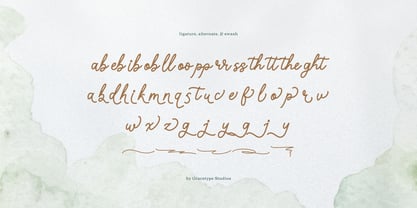 ligature, alternate, & swash
ab eb ib ob ll oo pp rr ss th tt the ght
a b d h i k m n q s t u c e f l o p r w
w x z g j y g j y
by Glacotype Studios